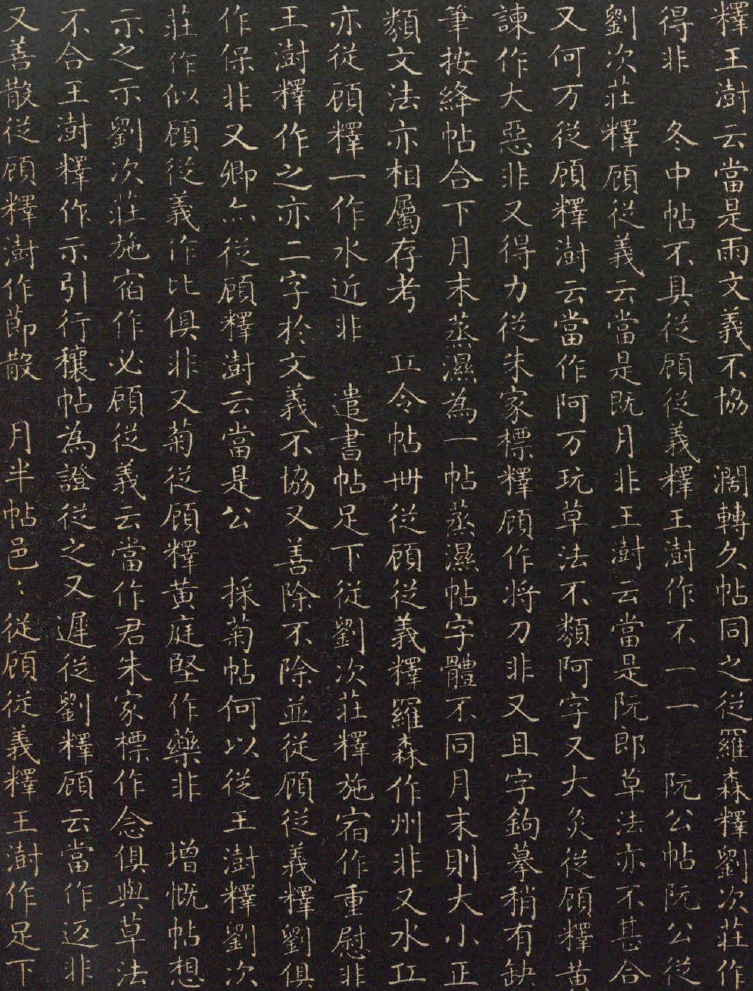 釋王澍云當是雨文義不協　濶轉久帖同之從羅森釋劉次莊作
得非　冬中帖不具從顧從義釋王澍作不一一　阮公帖阮公從
劉次莊釋顧從義云當是既月非王澍云當是阮郎草法亦不甚合
又何万從顧釋澍云當作阿万玩草法不類阿字又大炙從顧釋黄
諫作大惡非又得力從朱家標釋顧作將刀非又且字鉤摹稍有缺
筆按絳帖合下月末蒸濕為一帖蒸濕帖字體不同月末則大小正
類文法亦相屬存考　㠪令帖卌從顧從義釋羅森作州非又水㠪
亦從顧釋一作水近非　遣書帖足下從劉次莊釋施宿作重慰非
王澍釋作之亦二字於文義不協又善除不除並從顧從義釋劉俱
作保非又卿尒從顧釋澍云當是公　採菊帖何以從王澍釋劉次
莊作似顧從義作比俱非又菊從顧釋黄庭堅作藥非　增慨帖想
示之示劉次莊施宿作必顧從義云當作君朱家標作念俱與草法
不合王澍釋作示引行穰帖為證從之又遲從劉釋顧云當作迳非
又善散從顧釋澍作節散　月半帖邑〻從顧從義釋王澍作足下